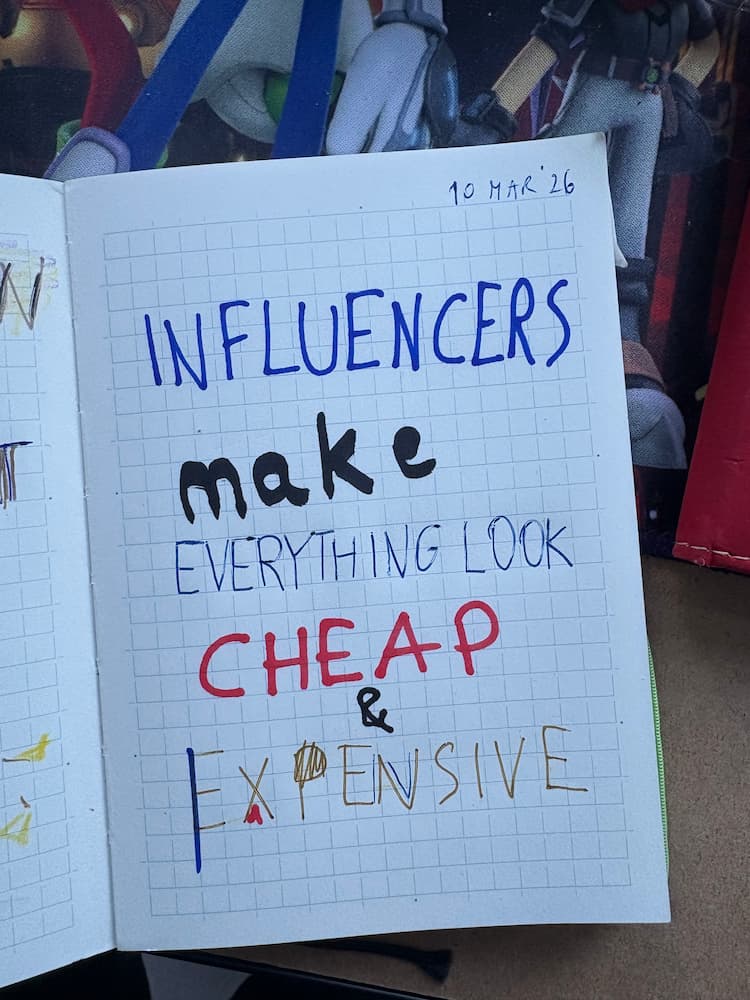 10 MAR '26
INFLUENCERS
make
EVERYTHING LOOK
CHEAP
&
EXPENSIVE